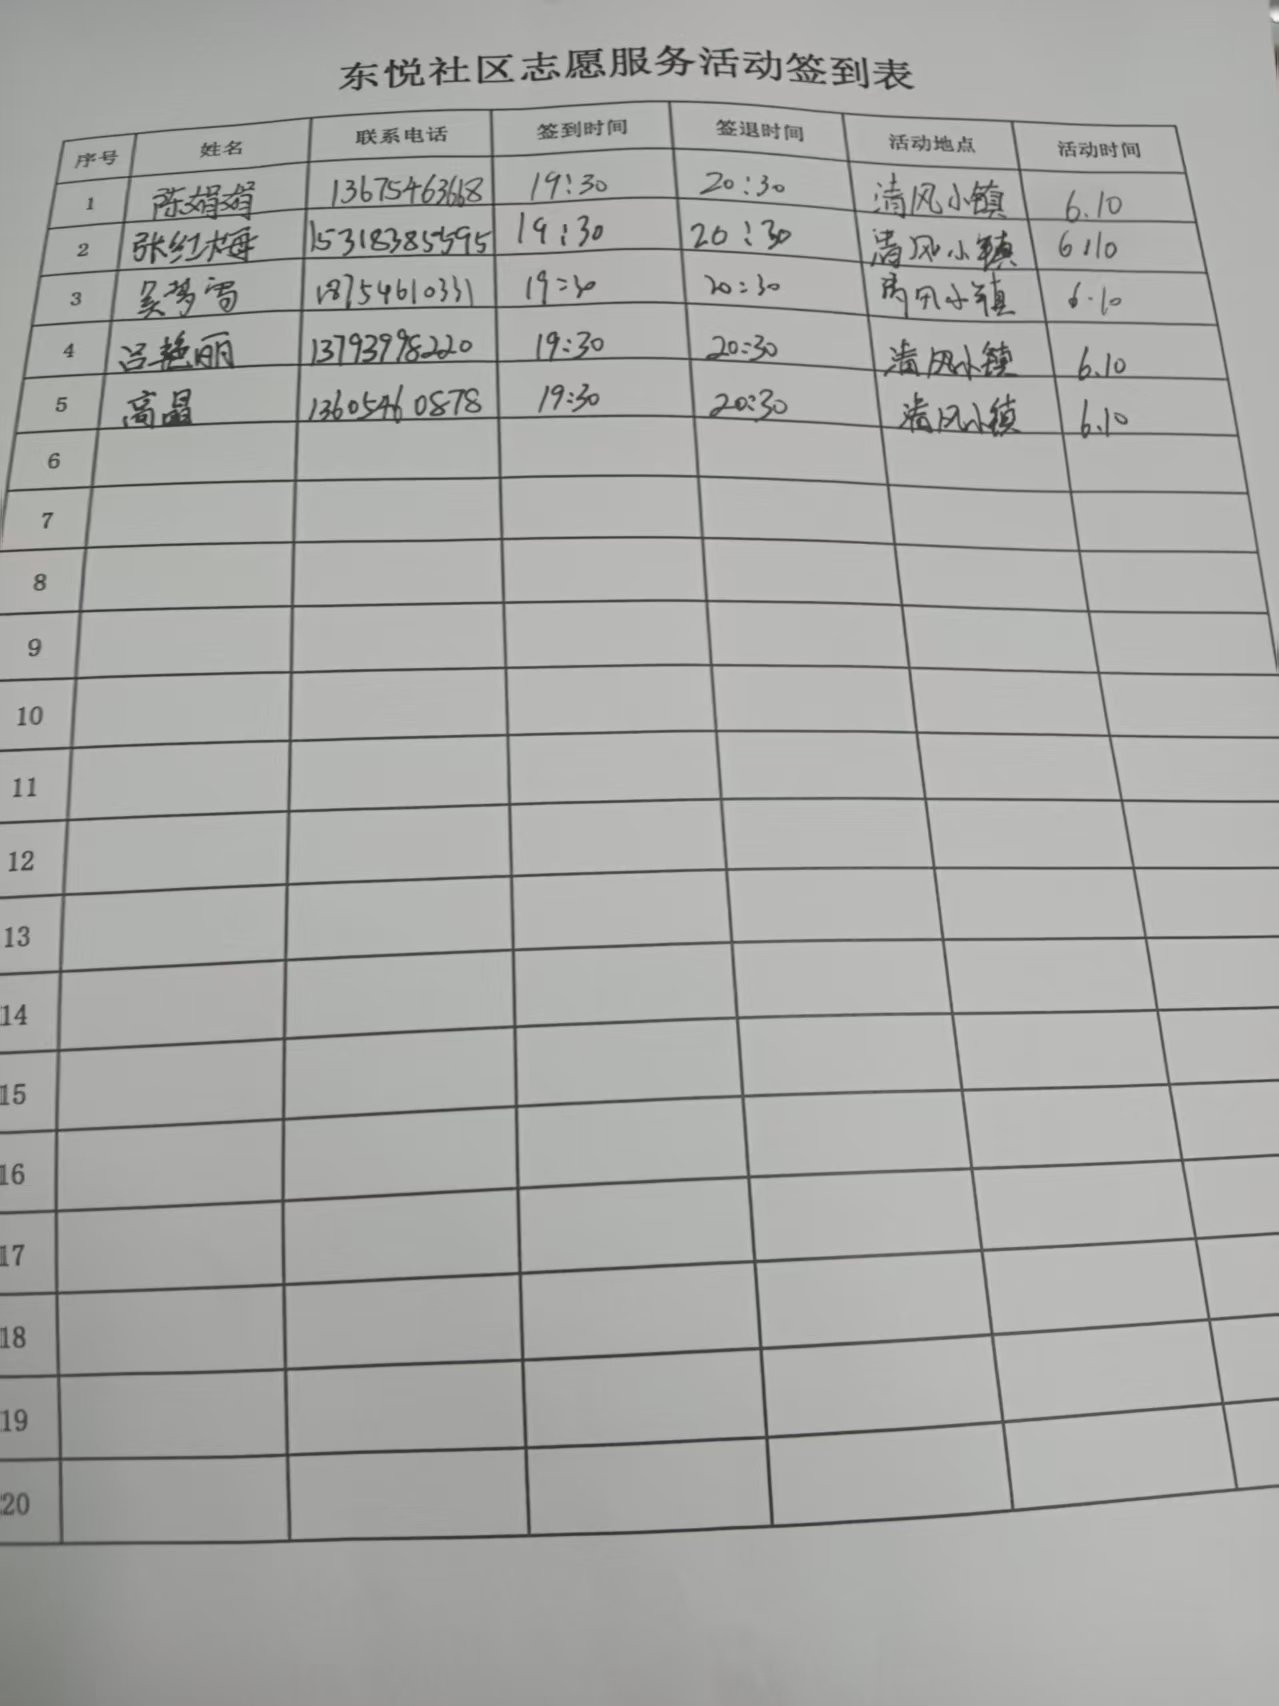 东悦社区志愿服务活动签到表
序号 姓名 联系电话 签到时间 签退时间 活动地点 活动时间
1 陈娟娟 13675463668 19:30 20:30 清风小镇 6.10
2 张红梅 15318385595 19:30 20:30 清风小镇 6.10
3 吴梦雪 18754610331 19:30 20:30 清风小镇 6.10
4 吕艳丽 13793998220 19:30 20:30 清风小镇 6.10
5 高晶 13605460878 19:30 20:30 清风小镇 6.10
6
7
8
9
10
11
12
13
14
15
16
17
18
19
20